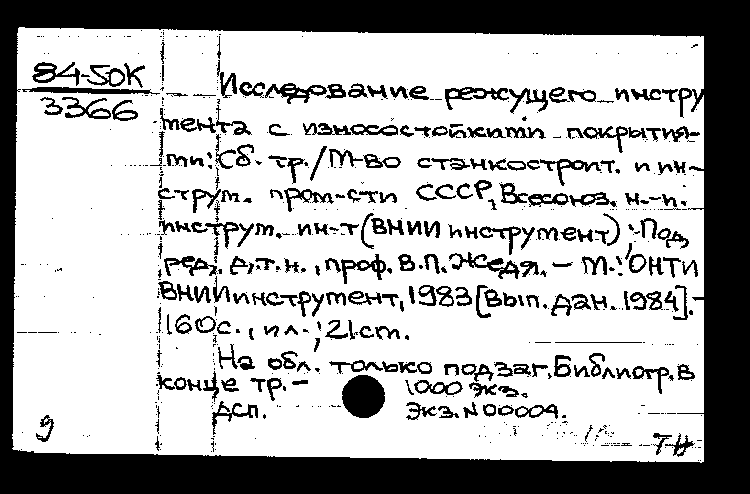 84-50К
3366
Исследование режущего инстру
мента с износостойкими покрытия-
ми: Сб. тр./М-во станкостроит. и ин-
струм. пром-сти СССР, Всесоюз. н.-и.
инструм. ин-т (ВНИИинструмент); Под
ред. д.т.н., проф. В.П. Жедя. – М.: ОНТИ
ВНИИинструмент, 1983 [Вып. дан. 1984]. –
160с., ил.; 21см.
На обл. только подзаг. Библиогр. в
конце тр. –
1000 экз.
ДСП.
Экз. N 00004.
9